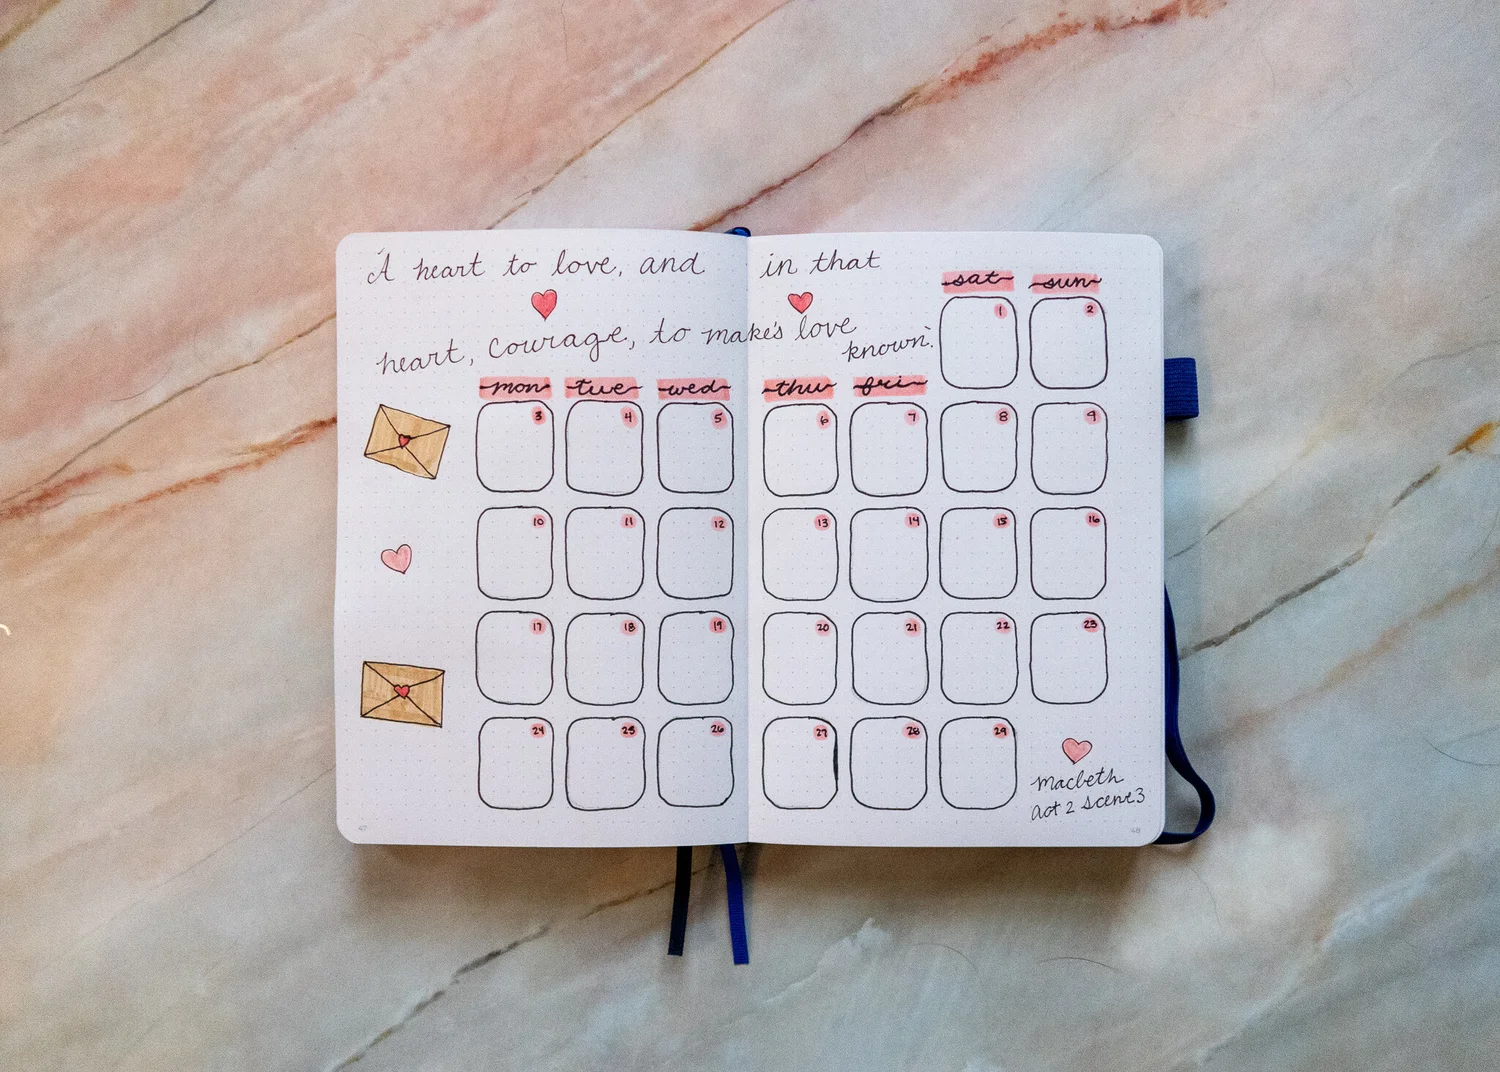 'A heart to love, and in that
heart, courage, to make's love
known'.
sat sun
1 2
mon tue wed thu fri
3 4 5 6 7 8 9
10 11 12 13 14 15 16
17 18 19 20 21 22 23
24 25 26 27 28 29
macbeth
act 2 scene 3
47 48